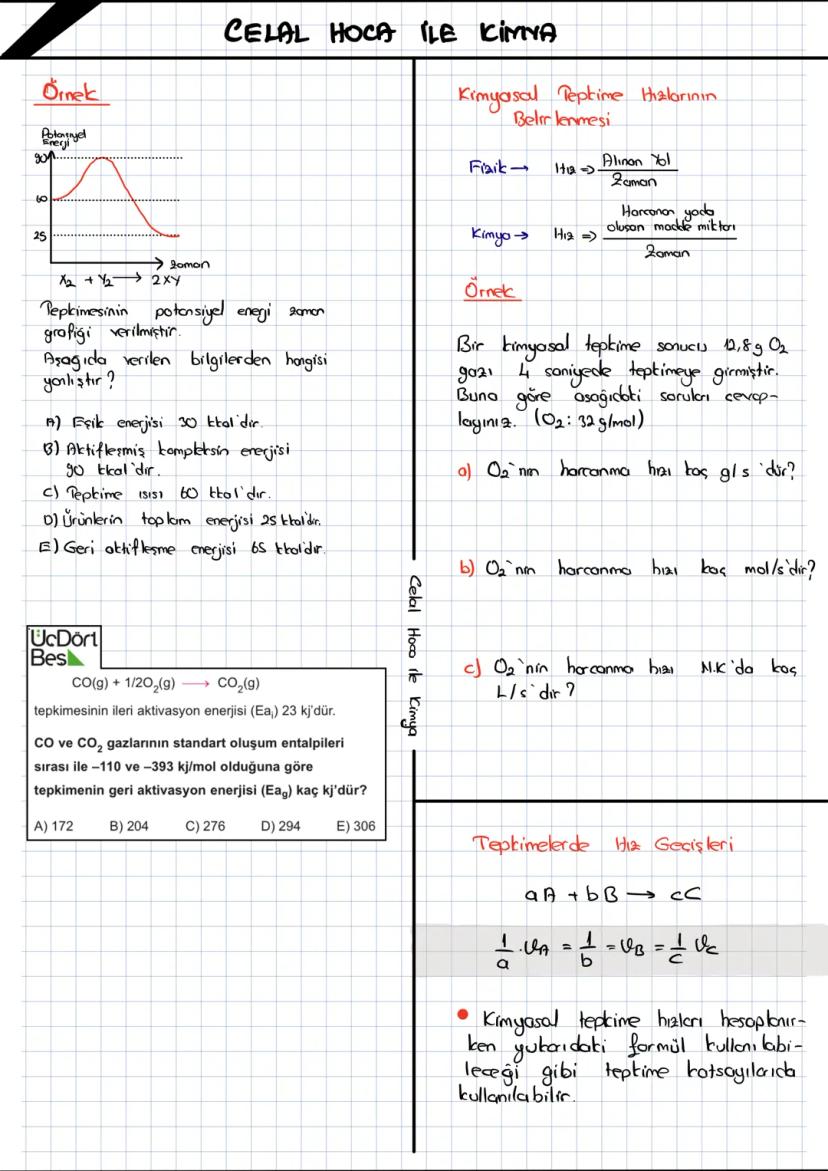 CELAL HOCA İLE KİMYA
Örnek
Potansiyel
Enerji
90
60
25
zaman
X₂ + Y₂ → 2XY
Tepkimesinin potansiyel enerji zaman
grafiği verilmiştir.
Aşağıda verilen bilgilerden hangisi
yanlıştır?
A) Eşik enerjisi 30 kkal'dir.
B) Aktifleşmiş kompleksin enerjisi
90 kkal'dir.
C) Tepkime ısısı 60 kkal'dir.
D) Ürünlerin toplam enerjisi 25 kkal'dir.
E) Geri aktifleşme enerjisi 65 kkal'dir.
ÜçDört
Beş
CO(g) + 1/2O₂(g) → CO₂(g)
tepkimesinin ileri aktivasyon enerjisi (Eaᵢ) 23 kj'dür.
CO ve CO₂ gazlarının standart oluşum entalpileri
sırası ile –110 ve –393 kj/mol olduğuna göre
tepkimenin geri aktivasyon enerjisi (Ea₉) kaç kj'dür?
A) 172 B) 204 C) 276 D) 294 E) 306
Celal Hoca ile Kimya
Kimyasal Tepkime Hızlarının
Belirlenmesi
Fizik → Hız => Alınan Yol
Zaman
Kimya → Hız => Harcanan yada
oluşan madde miktarı
Zaman
Örnek
Bir kimyasal tepkime sonucu 12,8 g O₂
gazı 4 saniyede tepkimeye girmiştir.
Buna göre aşağıdaki soruları cevap-
layınız. (O₂: 32 g/mol)
a) O₂'nın harcanma hızı kaç g/s 'dir?
b) O₂'nın harcanma hızı kaç mol/s'dir?
c) O₂'nın harcanma hızı N.K'da kaç
L/s'dir?
Tepkimelerde Hız Geçişleri
aA + bB → cC
1/a · ϑA = 1/b = ϑB = 1/c ϑC
• Kimyasal tepkime hızları hesaplanır-
ken yukarıdaki formül kullanılabi-
leceği gibi tepkime katsayılarıda
kullanılabilir.